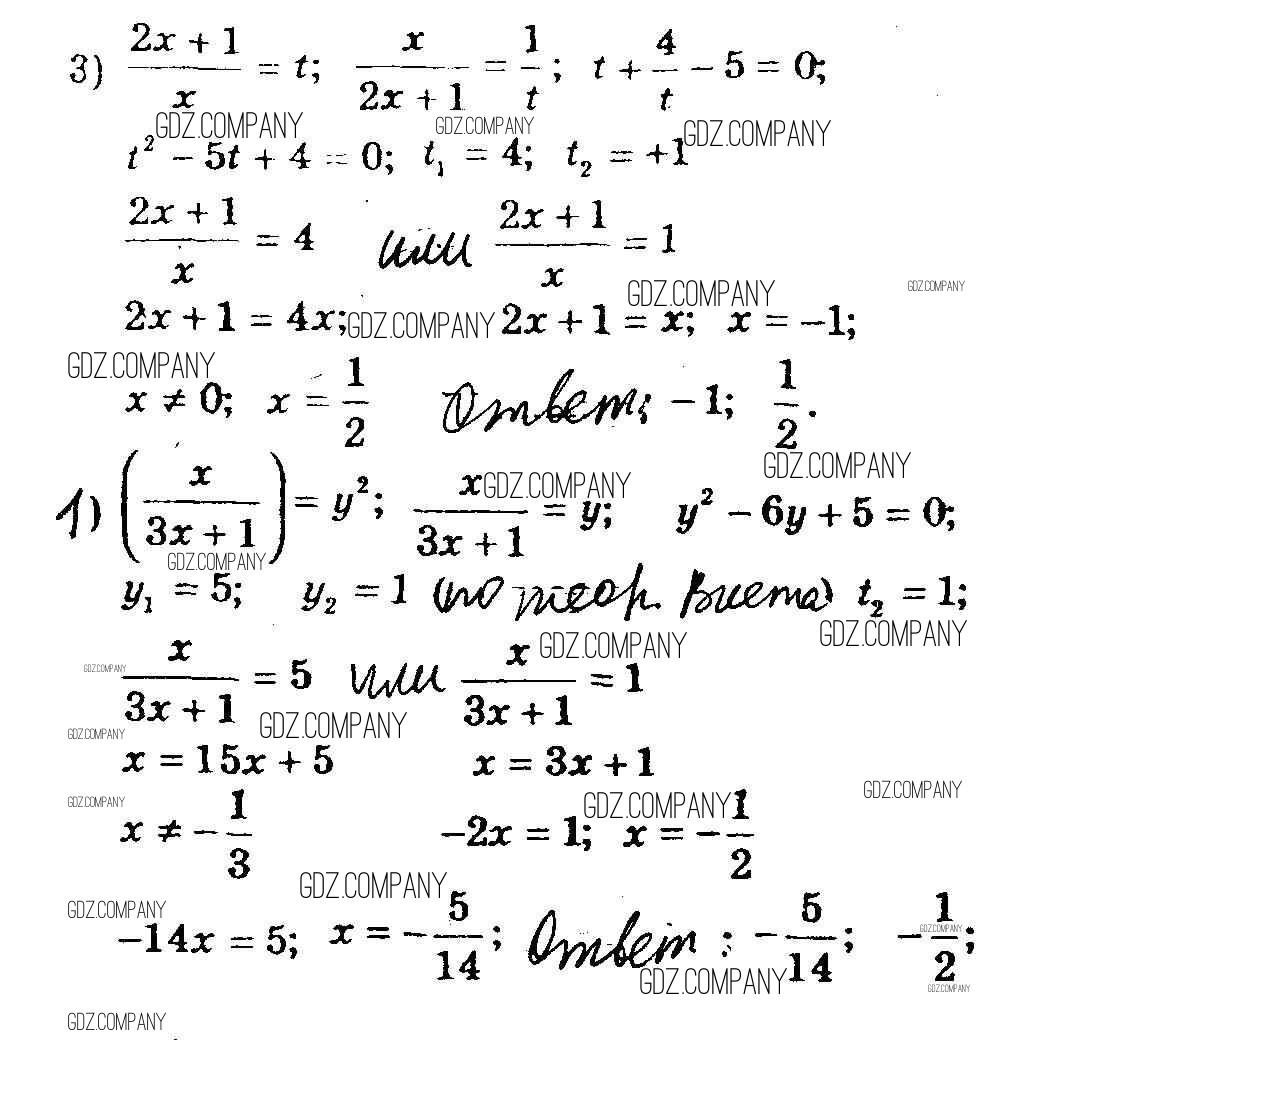 3) (2x + 1)/x = t; x/(2x + 1) = 1/t; t + 4/t − 5 = 0;
GDZ.COMPANY GDZ.COMPANY GDZ.COMPANY
t² − 5t + 4 = 0; t₁ = 4; t₂ = +1
(2x + 1)/x = 4 или (2x + 1)/x = 1
GDZ.COMPANY GDZ.COMPANY
2x + 1 = 4x; GDZ.COMPANY 2x + 1 = x; x = −1;
GDZ.COMPANY
x ≠ 0; x = 1/2 Ответ: −1; 1/2.
GDZ.COMPANY
1) (x/(3x + 1)) = y²; x/(3x + 1) = y; y² − 6y + 5 = 0;
GDZ.COMPANY
GDZ.COMPANY
y₁ = 5; y₂ = 1 (по теор. Виета) t₂ = 1;
GDZ.COMPANY GDZ.COMPANY
GDZ.COMPANY
x/(3x + 1) = 5 или x/(3x + 1) = 1
GDZ.COMPANY GDZ.COMPANY
x = 15x + 5 x = 3x + 1
GDZ.COMPANY GDZ.COMPANY GDZ.COMPANY
x ≠ −1/3 −2x = 1; x = −1/2
GDZ.COMPANY
GDZ.COMPANY
−14x = 5; x = −5/14; Ответ: −5/14; −1/2;
GDZ.COMPANY
GDZ.COMPANY
GDZ.COMPANY
GDZ.COMPANY